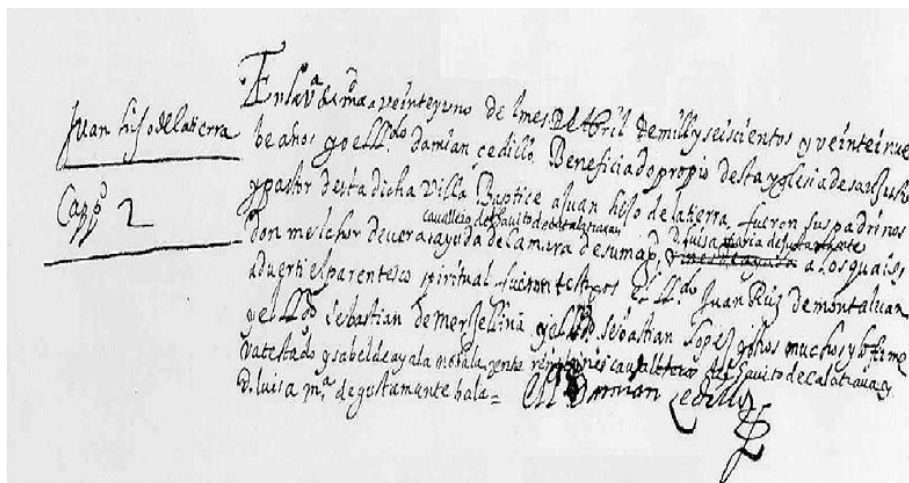 Juan hijo de la tierra
Capp.º 2
En la V.ª de m.d a veinte y uno de l mes De Abril de mill y seiscientos y veinte i nue
be años yo el ll.do damian cedillo Beneficiado propio desta yglesia de san Justo
y pastor desta dicha Villa Baptice a Juan hijo de la tierra fueron sus padrinos
cavallero del havito de calatrava
Don melchor de vera ayuda de camara de su mag.d D. luisa maria de a los quales
adverti el parentesco spiritual fueron testigos El ll.do Juan Ruiz de montalvan
y el ll.do sebastian de y el ll.do sebastian lopez y otros muchos y lo firme
va testado ysabel de ayala no vala entre renglones cavallero del havito de calatrava y
D. luisa m.ª de vala = El ll.do Damian Cedillo